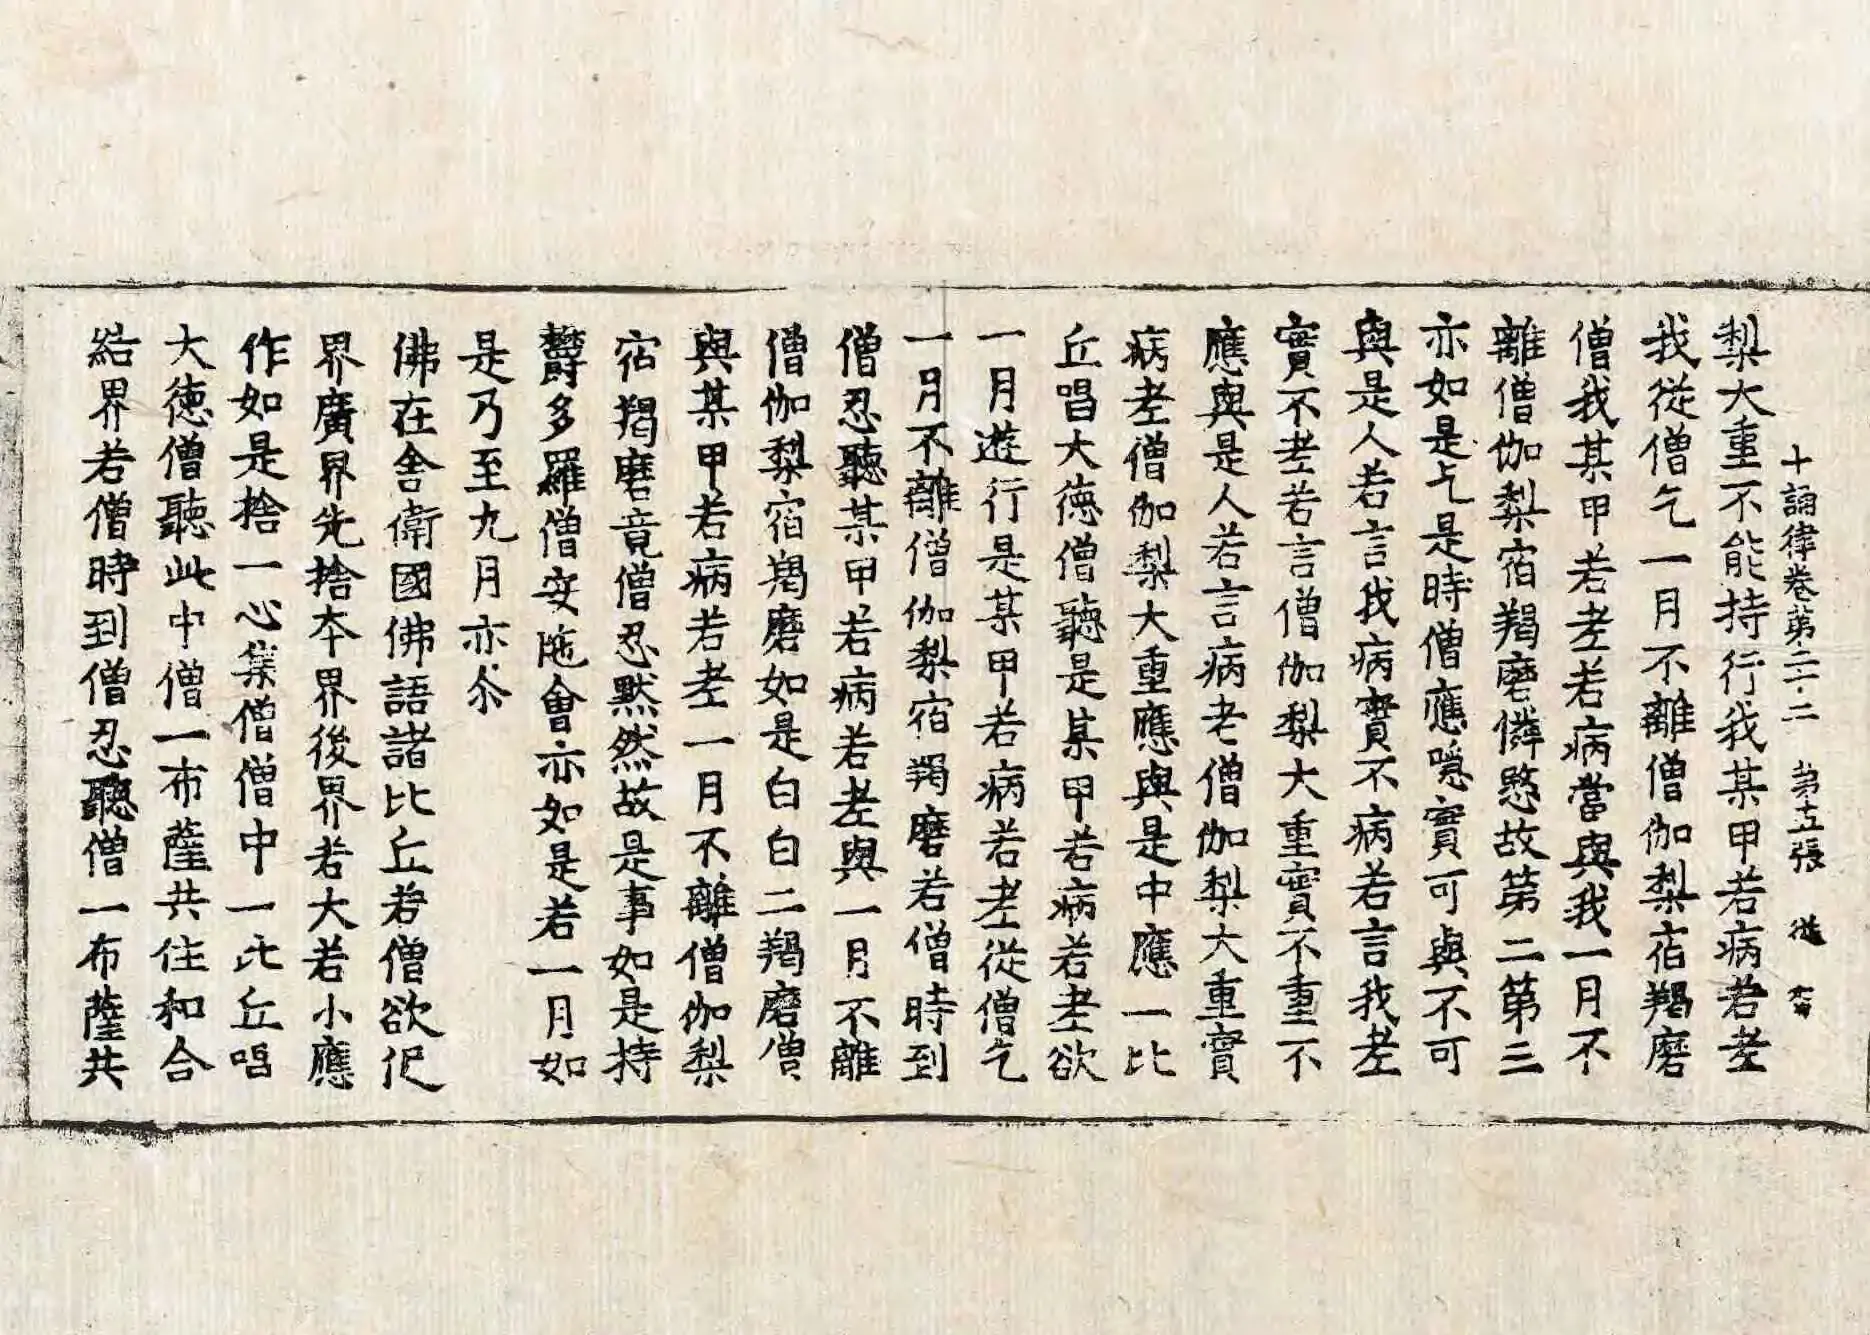 十誦律卷第二十二 第五張 從
梨大重不能持行我某甲若病若老
我從僧乞一月不離僧伽梨宿羯磨
僧我某甲若老若病當與我一月不
離僧伽梨宿羯磨憐愍故第二第三
亦如是乞是時僧應隱實可與不可
與是人若言我病實不病若言我老
實不老若言僧伽梨大重實不重不
應與是人若言病老僧伽梨大重實
病老僧伽梨大重應與是中應一比
丘唱大德僧聽是某甲若病若老欲
一月遊行是某甲若病若老從僧乞
一月不離僧伽梨宿羯磨若僧時到
僧忍聽某甲若病若老與一月不離
僧伽梨宿羯磨如是白白二羯磨僧
與某甲若病若老一月不離僧伽梨
宿羯磨竟僧忍默然故是事如是持
欝多羅僧安陁會亦如是若一月如
是乃至九月亦尒
佛在舍衛國佛語諸比丘若僧欲伲
界廣界先捨本界後界若大若小應
作如是捨一心集僧僧中一比丘唱
大德僧聽此中僧一布薩共住和合
結界若僧時到僧忍聽僧一布薩共